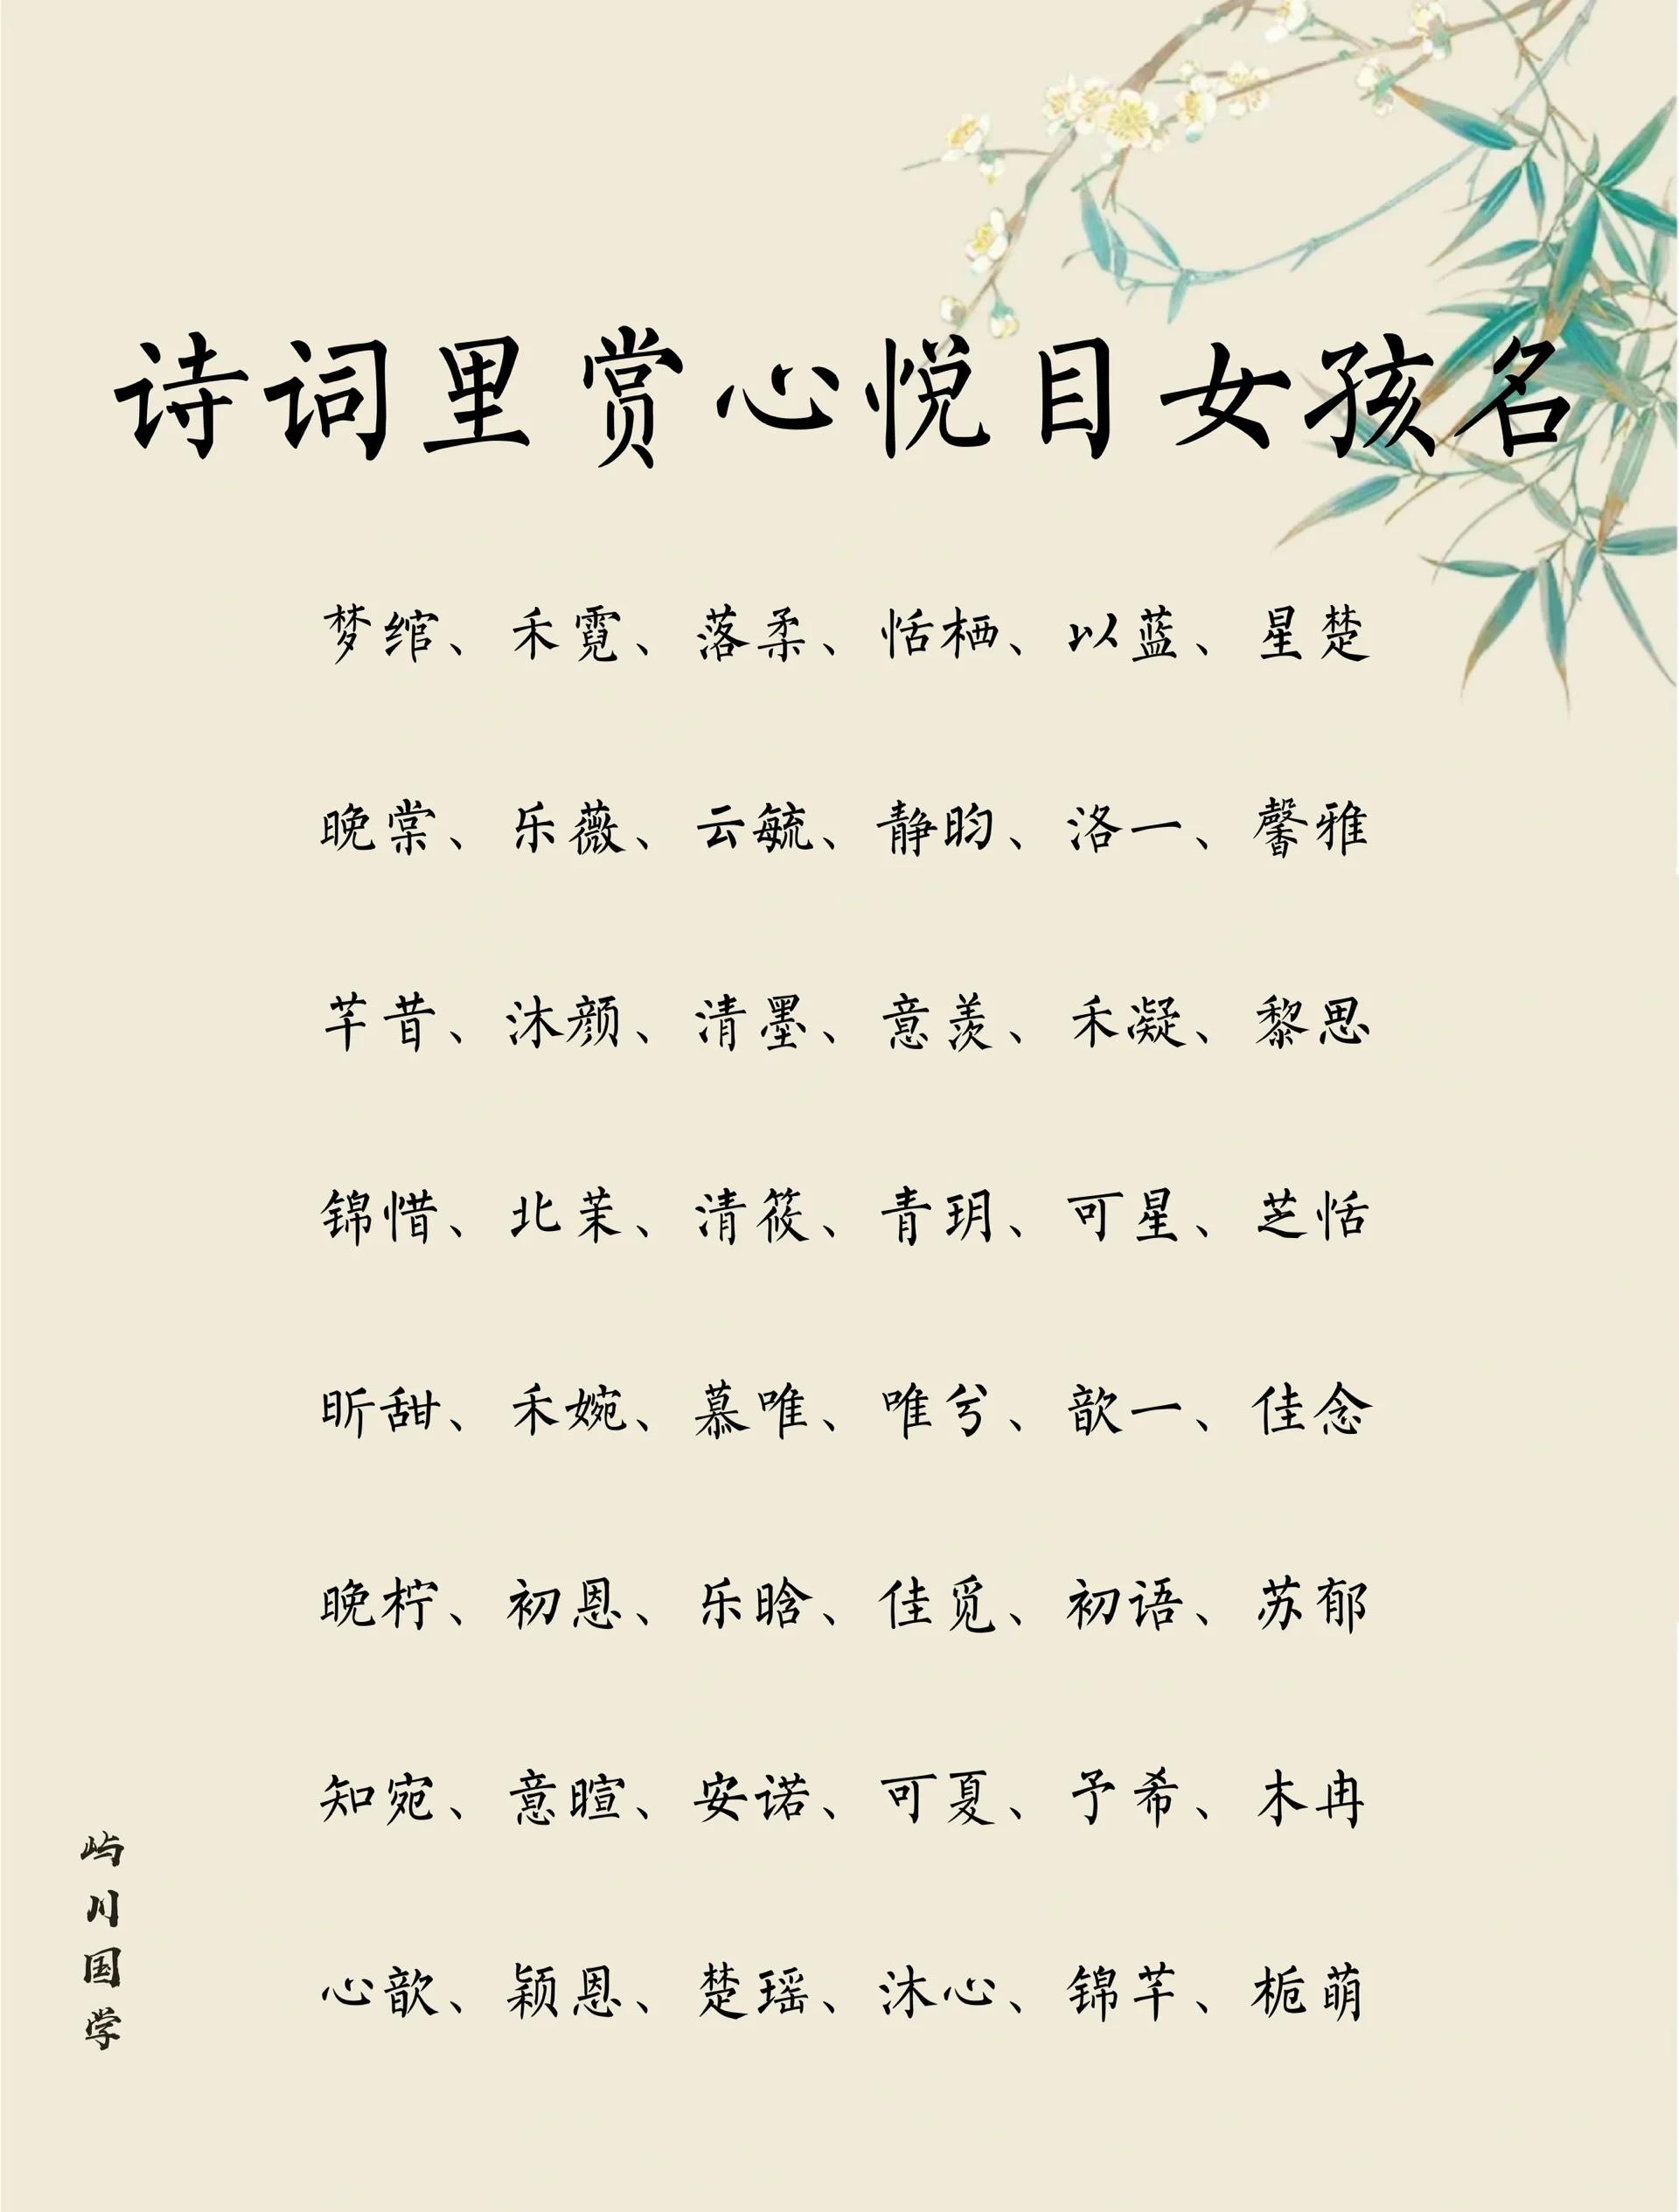 诗词里赏心悦目女孩名
梦绾、禾霓、落柔、恬栖、以蓝、星楚
晚棠、乐薇、云毓、静昀、洛一、馨雅
芊昔、沐颜、清墨、意羡、禾凝、黎思
锦惜、北茉、清筱、青玥、可星、芝恬
昕甜、禾婉、慕唯、唯兮、歆一、佳念
晚柠、初恩、乐晗、佳觅、初语、苏郁
知宛、意暄、安诺、可夏、予希、木冉
心歆、颖恩、楚瑶、沐心、锦芊、栀萌
屿川国学